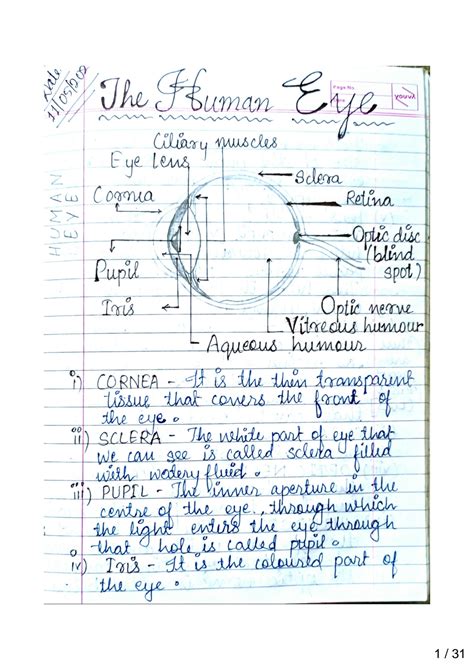 Date
11/05/202
Page No.
Youva
The Human Eye
HUMAN EYE
Ciliary muscles
Eye Lens
Sclera
Cornia
Retina
Optic disc
(blind
spot)
Pupil
Iris
Optic nerve
Vitreous humour
Aqueous humour
i) CORNEA - It is the thin transparent
tissue that covers the front of
the eye.
ii) SCLERA - The white part of eye that
we can see is called sclera filled
with watery fluid.
iii) PUPIL - The inner aperture in the
centre of the eye, through which
the light enters the eye through
that hole is called pupil.
iv) Iris - It is the coloured part of
the eye.
1 / 31